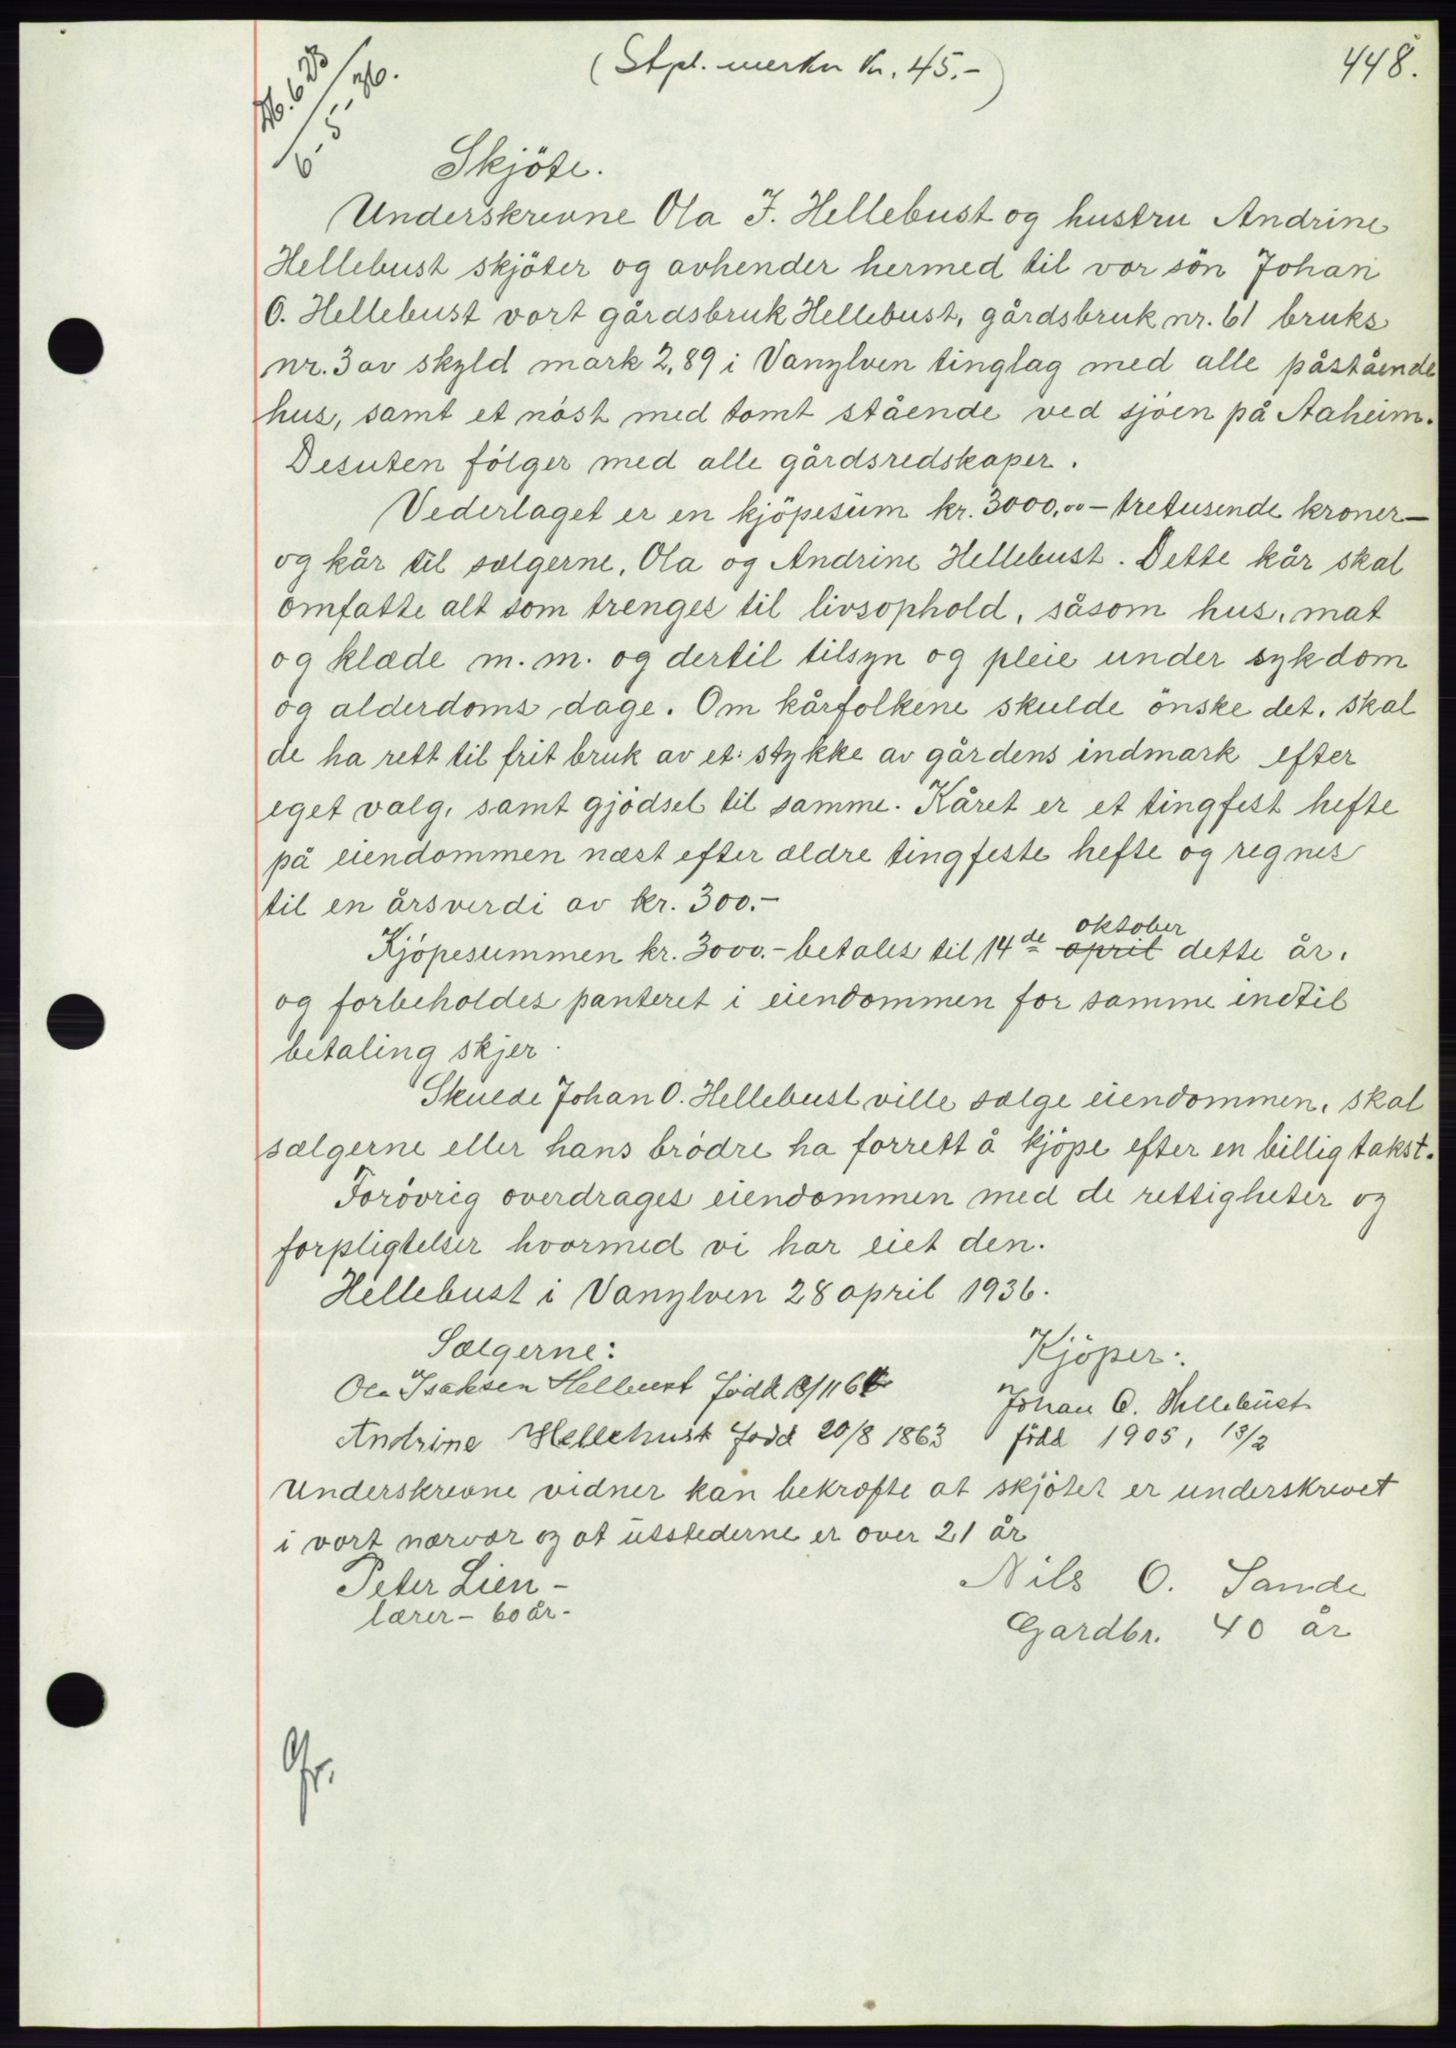 (Stpl. merker Kr. 45.-)
448.
6-5-36.
Skjöte.
Underskrevne Ola I. Hellebust og hustru Andrine
Hellebust skjöter og avhender hermed til vor sön Johan
O. Hellebust vort gårdsbruk Hellebust, gårdsbruk nr. 61 bruks
nr. 3 av skyld mark 2,89 i Vanylven tinglag med alle påstående
hus, samt et nöst med tomt stående ved sjöen på Aaheim.
Desuten fölger med alle gårdsredskaper.
Vederlaget er en kjöpesum kr. 3000,00 - tretusende kroner -
og kår til sælgerne, Ola og Andrine Hellebust. Dette kår skal
omfatte alt som trenges til livsophold, såsom hus, mat
og klæde m.m. og dertil tilsyn og pleie under sykdom
og alderdoms dage. Om kårfolkene skulde önske det, skal
de ha rett til frit bruk av et stykke av gårdens indmark efter
eget valg, samt gjödsel til samme. Kåret er et tingfest hefte
på eiendommen næst efter ældre tingfeste hefte og regnes
til en årsverdi av kr. 300.-
oktober
Kjöpesummen kr. 3000.- betales til 14de april dette år,
og forbeholdes panteret i eiendommen for samme indtil
betaling skjer.
Skulde Johan O. Hellebust ville sælge eiendommen, skal
sælgerne eller hans brödre ha forrett å kjöpe efter en billig takst.
Forövrig overdrages eiendommen med de rettigheter og
forpligtelser hvormed vi har eiet den.
Hellebust i Vanylven 28 april 1936.
Sælgerne:
Kjöper:
Ola Isaksen Hellebust född
Johan O. Hellebust
Andrine Hellebust född 20/8 1863
född 1905, 13/2
Underskrevne vidner kan bekræfte at skjötet er underskrevet
i vort nærvær og at utstederne er over 21 år
Peter Lien -
Nils O. Sande
lærer - 60 år -
Gardbr. 40 år